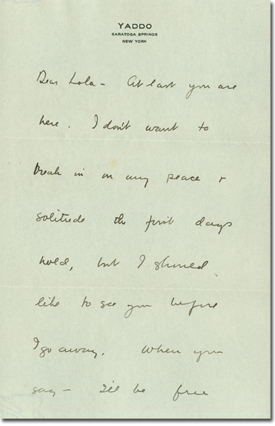 YADDO
SARATOGA SPRINGS
NEW YORK
Dear Lola - At last you are
here. I don't want to
break in on any peace +
solitude the first days
hold, but I should
like to see you before
I go away. When you
say - I'll be free